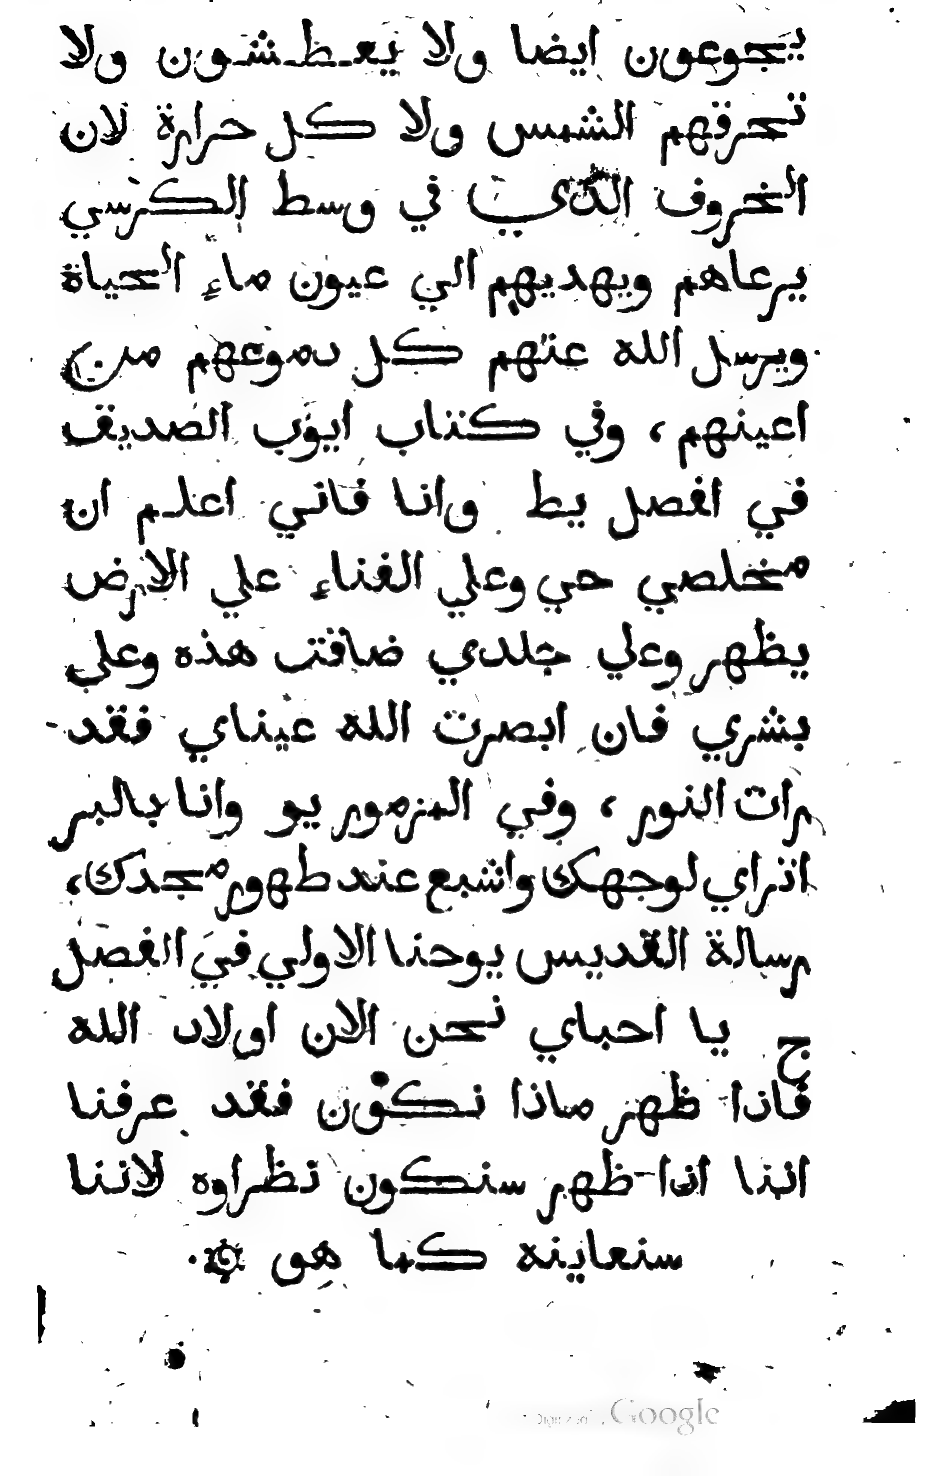 يجوعون ايضا ولا يعطشون ولا
تحرقهم الشمس ولا كل حرارة لان
الخروف الذي في وسط الكرسي
يرعاهم ويهديهم الي عيون ماءٍ الحياة
ويرسل الله عنهم كل دموعهم من
اعينهم ، وفي كتاب ايوب الصديق
في افصل يط وانا فاني اعلم ان
مخلصي حي وعلي الفناءِ علي الارض
يظهر وعلي جلدي ضاقت هذه وعلي
بشري فان ابصرت الله عيناي فقد
رات النور ، وفي المزمور يو وانا بالبر
اتراي لوجهك واشبع عند طهور مجدك،
رسالة القديس يوحنا الاولي في الفصل
ج يا احباي نحن الان اولاد الله
فاذا ظهر ماذا نكون فقد عرفنا
اننا اذا ظهر سنكون نظراوه لاننا
سنعاينه كما هو
Google